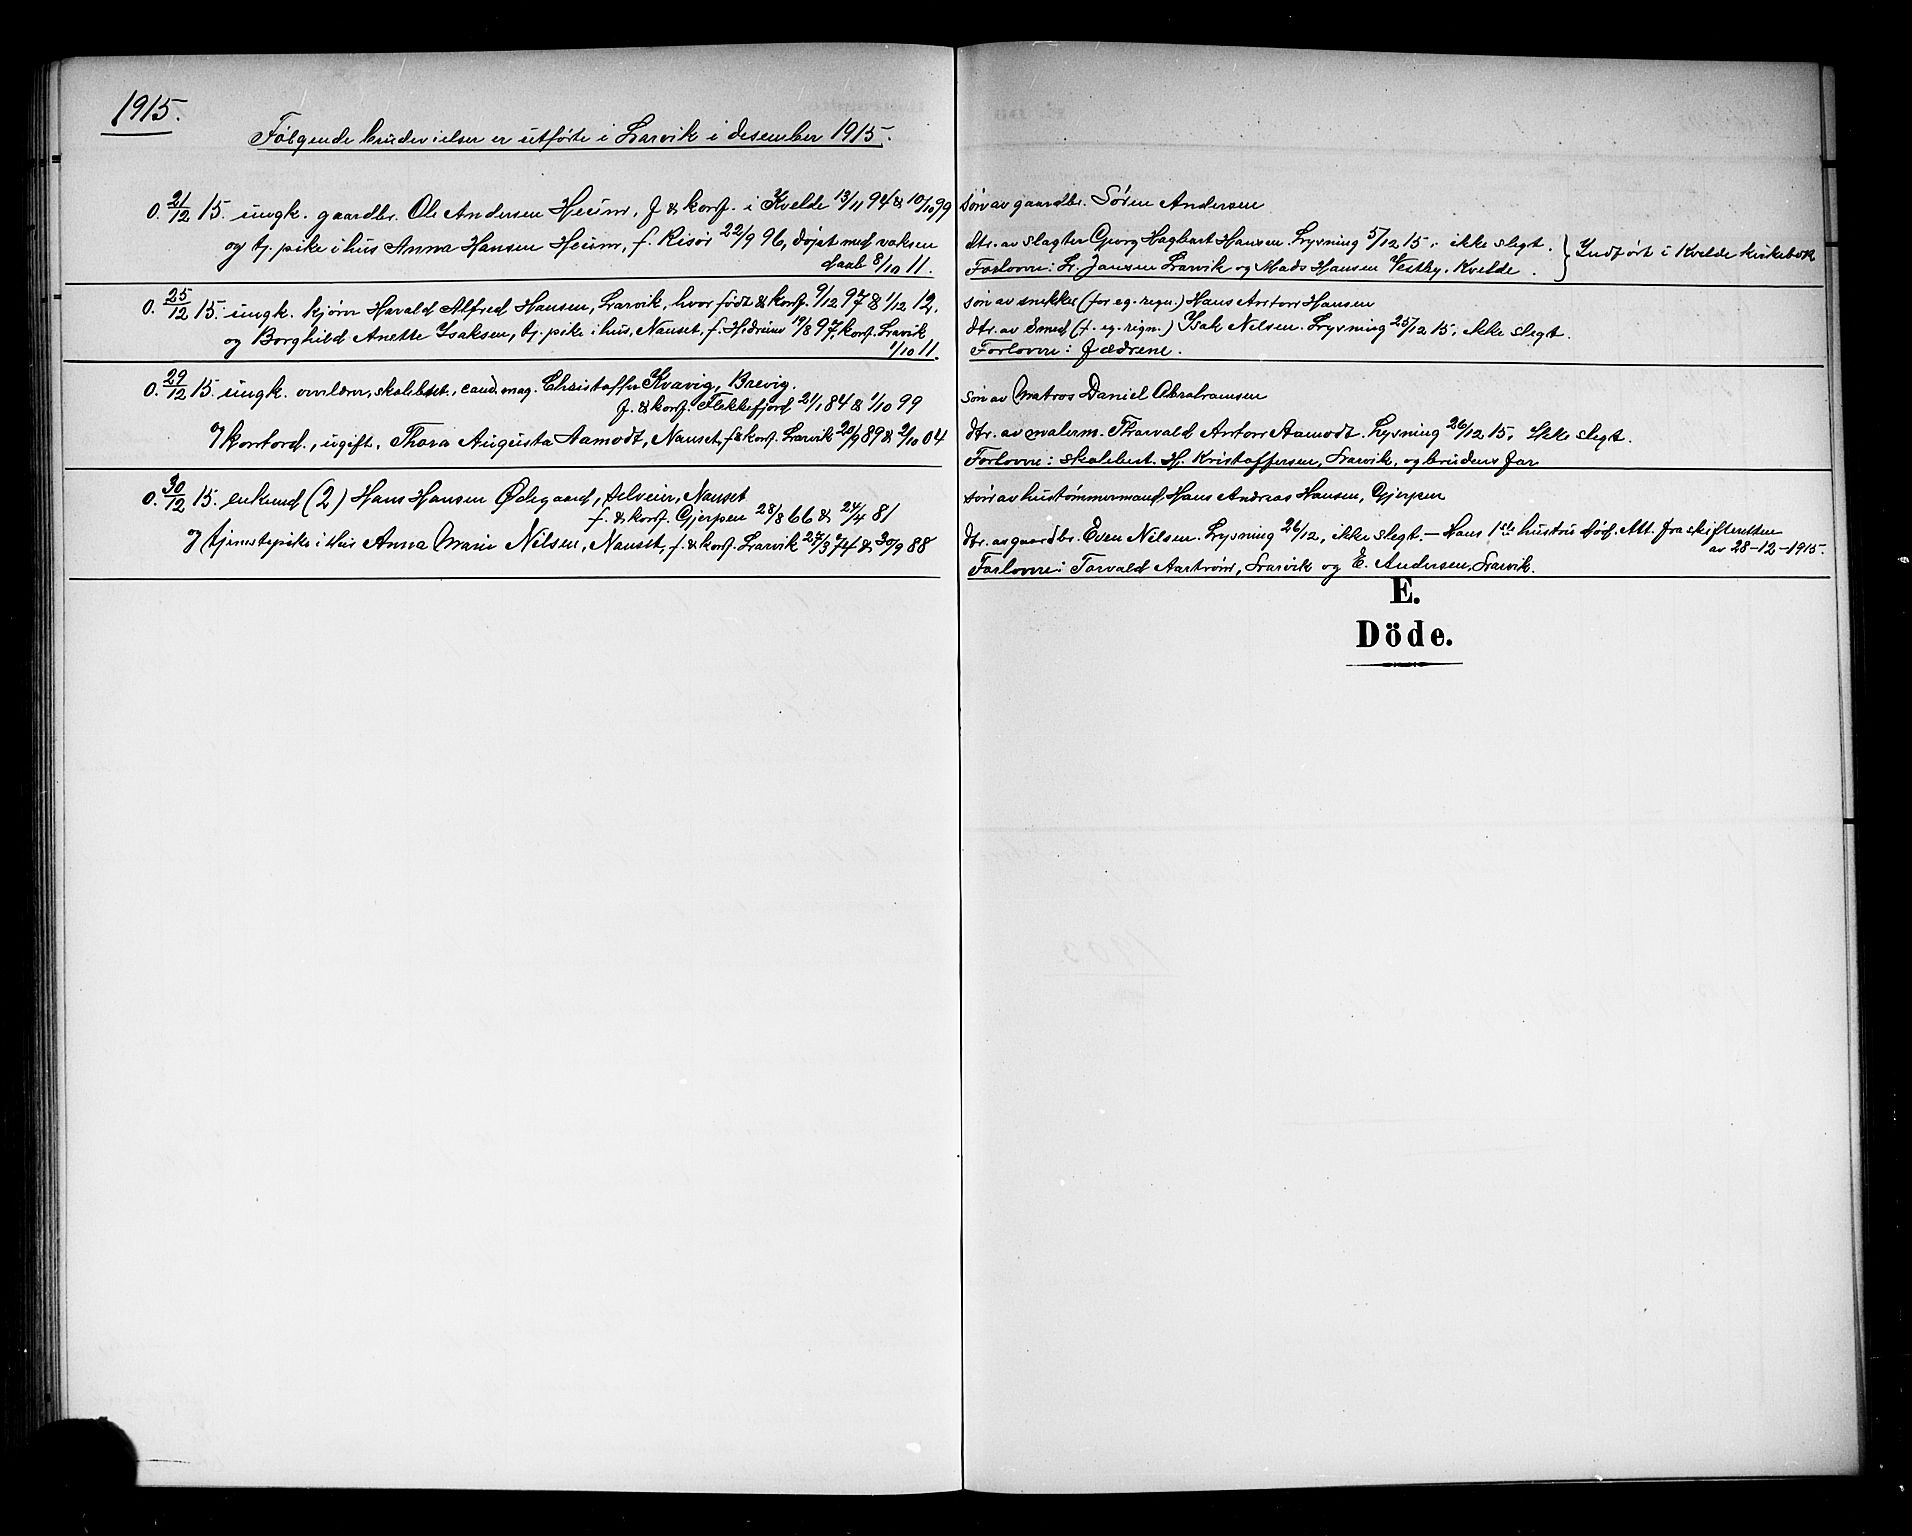 1915.
Følgende brudevielser er utførte i Larvik i desember 1915.
0. 21/12 15. ungk. gaardbr. Ole Andersen Heum, f & konf. i Kvelde 13/11 94 & 10/10 99
og tj. pike i hus Anna Hansen Heum, f. Risør 22/9 96, døpt med voksen
daab 8/10 11.
søn av gaardbr. Søren Andersen
dtr. av slagter Georg Hagbart Hansen. Lysning 5/12 15. ikke slegt.
Forlovere: L. Jansen Larvik og Mads Hansen Vestby, Kvelde.
Indført i Kvelde kirkebok
0. 25/12 15. ungk. kjører Harald Alfred Hansen, Larvik, hvor født & konf. 9/12 97 & 1/12 12.
og Borghild Anette Isaksen, tj. pike i hus, Nanset, f. Hedrum 19/8 97, konf. Larvik
1/10 11.
søn av snekker (for eg. regn.) Hans Anton Hansen
dtr. av Smed (f. eg. regn.) Isak Nilsen. Lysning 25/12 15, ikke slegt.
Forlovere: Fædrene.
0. 29/12 15. ungk. overlærer, skolebest., cand. mag. Christoffer Kvavig, Brevig.
f. & konf. Flekkefjord 21/1 84 & 1/10 99
og kontord., ugift, Thora Augusta Aamodt, Nanset, f & konf. Larvik 20/9 89 & 2/10 04
søn av Matros Daniel Abrahamsen
dtr. av malerm. Thorvald Anton Aamodt. Lysning 26/12 15, ikke slegt.
Forlovere: skolebest. H. Kristoffersen, Larvik, og brudens far
0. 30/12 15. enkemd (2) Hans Hansen Ødegaard, selveier, Nanset
f. & konf. Gjerpen 28/8 66 & 24/4 81
og tjenestepike i hus Anna Marie Nilsen, Nanset, f. & konf. Larvik 27/3 74 & 30/9 88
søn av hustømmermand Hans Andreas Hansen, Gjerpen
dtr. av gaardbr. Even Nilsen. Lysning 26/12, ikke slegt. — Hans 1ste hustru død. Att. fra skifteretten
av 28-12-1915.
Forlovere: Torvald Aastrøm, Larvik og E. Andersen, Larvik.
E.
Döde.